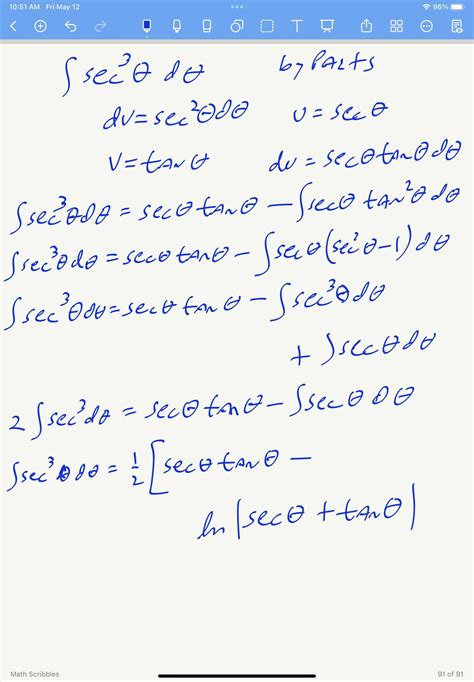 10:51 AM Fri May 12
96%
∫ sec³θ dθ by PARTS
dv = sec²θdθ u = sec θ
v = tan θ du = secθtanθdθ
∫sec³θdθ = secθ tanθ − ∫secθ tan²θ dθ
∫sec³θdθ = secθ tanθ − ∫secθ(sec²θ−1)dθ
∫sec³θdθ = secθ tanθ − ∫sec³θdθ
+ ∫secθdθ
2∫sec³dθ = secθ tanθ − ∫secθ dθ
∫sec³θdθ = ½[secθ tanθ −
ln|secθ + tanθ|
Math Scribbles
91 of 91